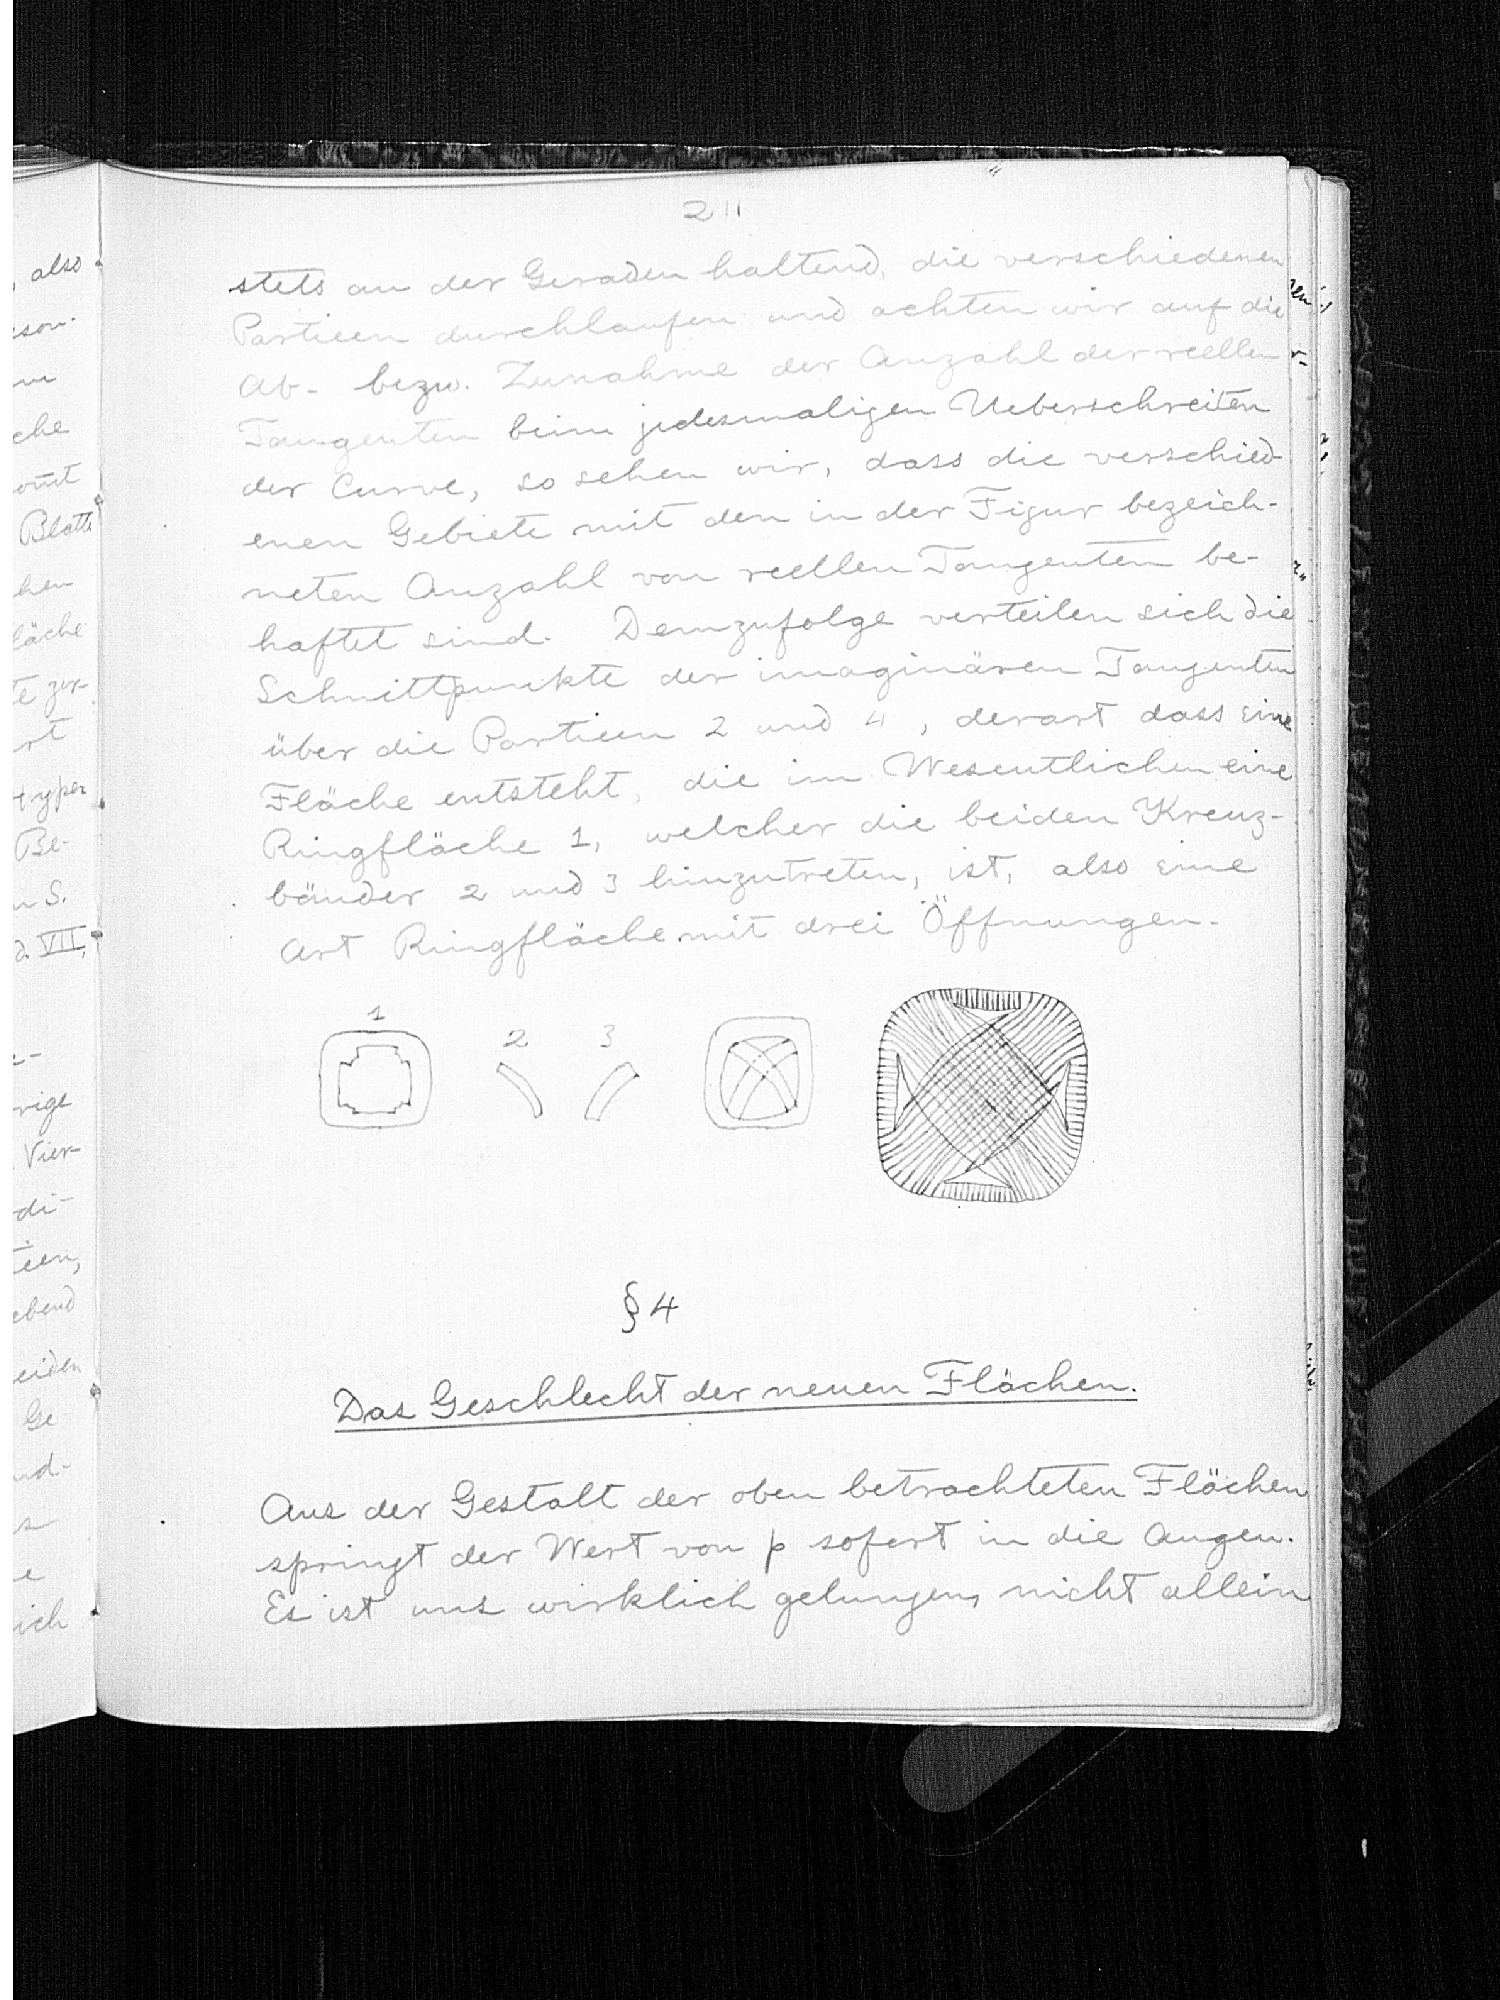 , also
che
Blatt
hen
läche
te zer-
rt
typen
Be-
n S.
d. VII,
rige
Vier-
di-
teen,
ebend
eiden
Ge
nd-
s
e
ich
211
stets an der Geraden haltend, die verschiedenen
Partieen durchlaufen und achten wir auf die
Ab- bezw. Zunahme der Anzahl der reellen
Tangenten beim jedesmaligen Ueberschreiten
der Curve, so sehen wir, dass die verschied-
enen Gebiete mit den in der Figur bezeich-
neten Anzahl von reellen Tangenten be-
haftet sind. Demzufolge verteilen sich die
Schnittpunkte der imaginären Tangenten
über die Partieen 2 und 4, derart dass eine
Fläche entsteht, die im Wesentlichen eine
Ringfläche 1, welcher die beiden Kreuz-
bänder 2 und 3 hinzutreten, ist, also eine
Art Ringfläche mit drei Öffnungen.
1
2 3
§ 4
Das Geschlecht der neuen Flächen.
Aus der Gestalt der oben betrachteten Flächen
springt der Wert von p sofort in die Augen.
Es ist uns wirklich gelungen, nicht allein